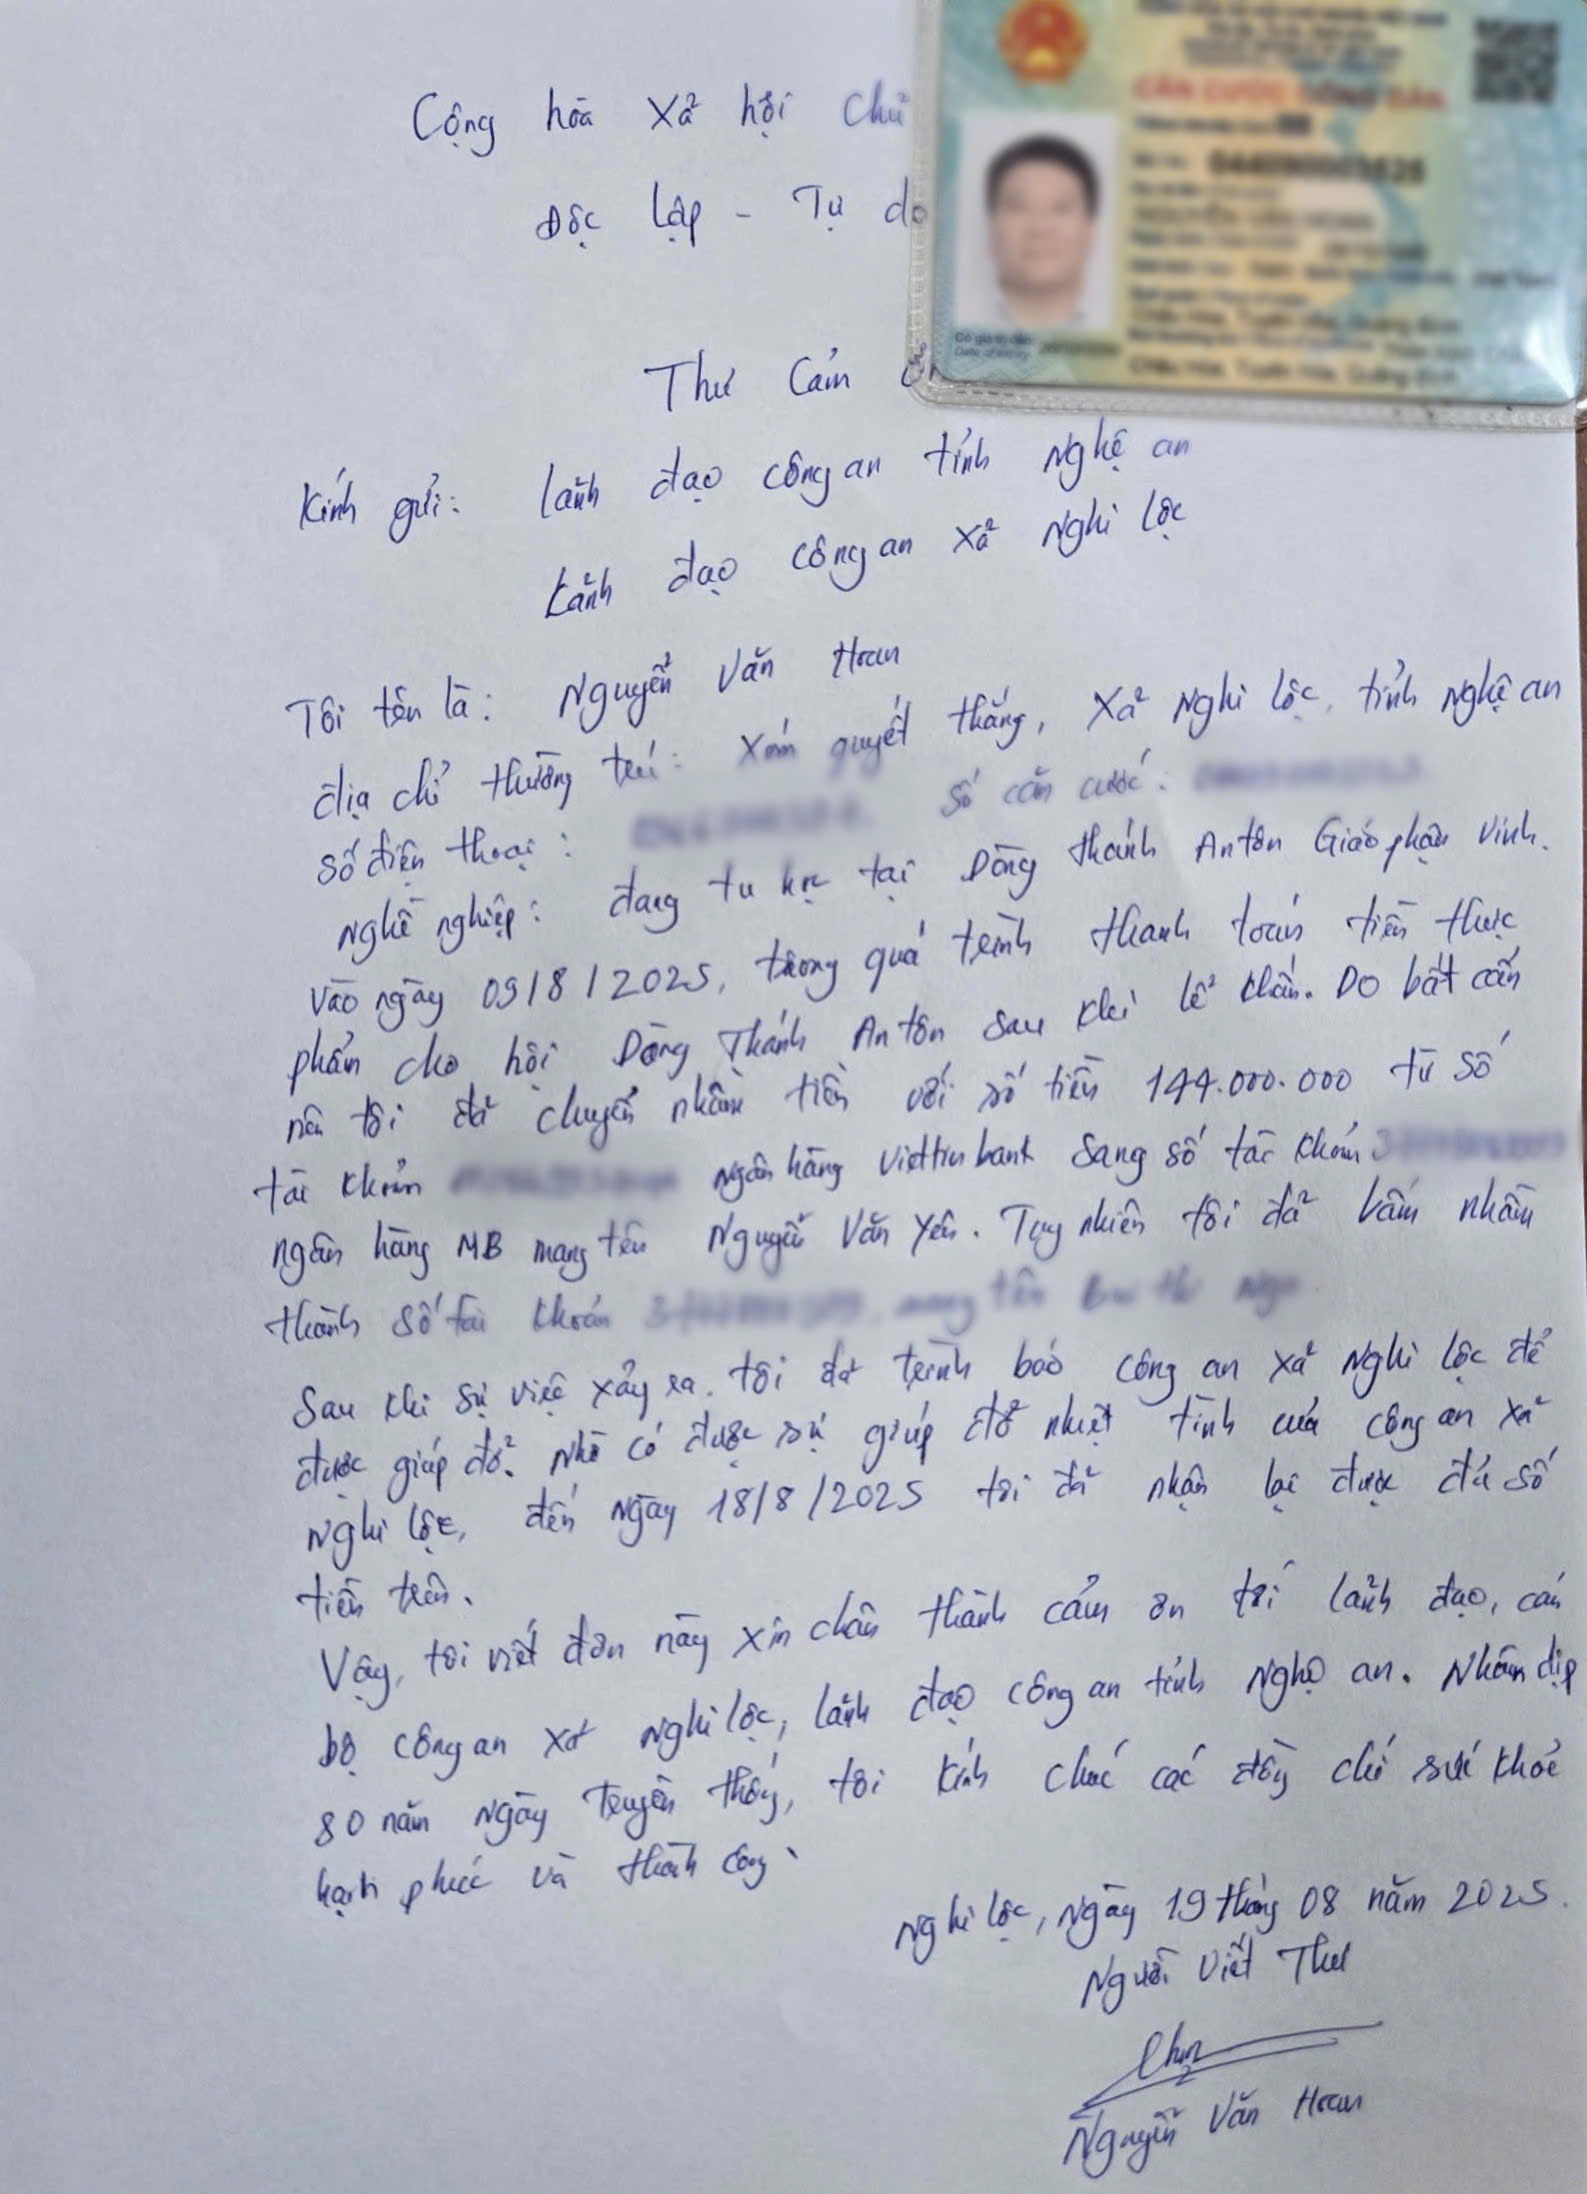 CĂN CƯỚC CÔNG DÂN
Cộng hòa xả hội chủ
Độc lập - Tự do
Thư Cảm
Kính gửi: Lảnh đạo công an tỉnh Nghệ an
Lảnh đạo công an xả Nghi Lộc
Tôi tên là: Nguyễn Văn Hoan
địa chỉ thường trú: Xóm quyết thắng, Xả Nghi Lộc, tỉnh Nghệ an
Số điện thoại: Số căn cước:
Nghề nghiệp: đang tu học tại Dòng thánh Antôn Giáo phận Vinh.
Vào ngày 09/8/2025, trong quá trình thanh toán tiền thực
phẩm cho hội Dòng Thánh Antôn sau khi lể khấn. Do bất cẩn
nên tôi đả chuyển nhầm tiền với số tiền 144.000.000 từ số
tài khoản ngân hàng Viettinbank sang số tài khoản
ngân hàng MB mang tên Nguyễn Văn Yên. Tuy nhiên tôi đả bấm nhầm
thành số tài khoản mang tên
Sau khi sự việc xảy ra. tôi đả trình báo công an xả Nghi Lộc để
được giúp đở. Nhờ có được sự giúp đở nhiệt tình của công an xả
Nghi Lộc, đến ngày 18/8/2025 tôi đả nhận lại được đủ số
tiền trên.
Vậy, tôi viết đơn này xin chân thành cảm ơn tới lảnh đạo, cán
bộ công an xả Nghi Lộc, lảnh đạo công an tỉnh Nghệ an. Nhân dịp
80 năm ngày truyền thống, tôi kính chúc các đồng chí sức khỏe
hạnh phúc và thành công.
Nghi Lộc, Ngày 19 tháng 08 năm 2025.
Người Viết Thư
Nguyễn Văn Hoan